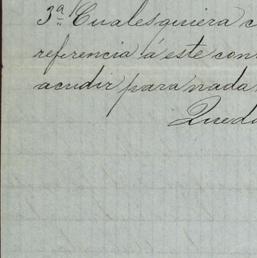 3ª Cualesquiera c
referencia á este con
acudir para nada
Queda